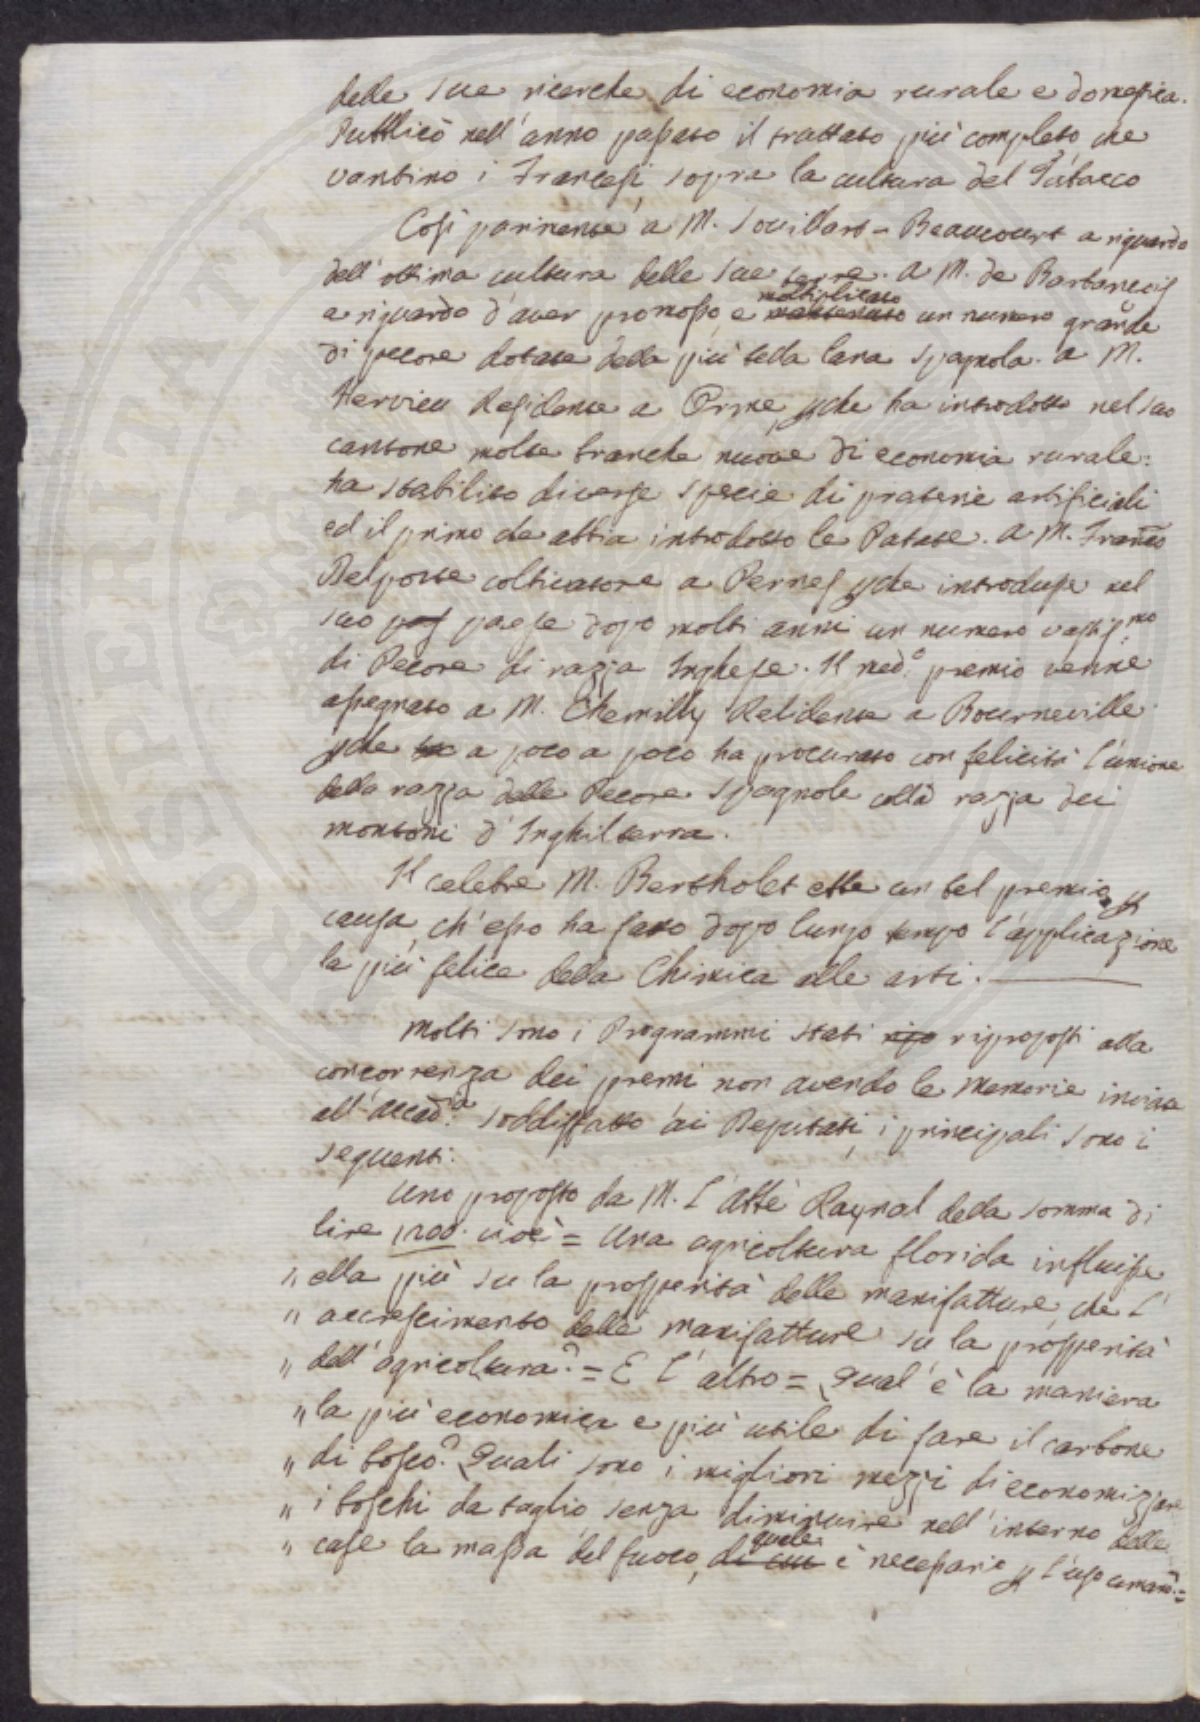 delle sue ricerche di economia rurale e domestica.
Pubblicò nell'anno passato il trattato più completo che
vantino i Francesi, sopra la cultura del Tabacco
Così parimente a M. Souillart-Beaucourt a riguardo
dell'ottima cultura delle sue terre. a M. de Barbancois
moltiplicato
a riguardo d'aver promosso, e un numero grande
di pecore dotate della più bella lana spagnola. a M.
Hervieu Residente a Orme, che ha introdotto nel suo
cantone molte branche nuove di economia rurale:
ha stabilito diverse specie di praterie artificiali
ed il primo che abbia introdotto le Patate. a M. Franc.co
Delporte coltivatore a Pernes che introdusse nel
suo paese dopo molti anni un numero vastiss.mo
di Pecore di razza Inglese. Il med.o premio venne
assegnato a M. Chemilly Residente a Bourneville
che a poco a poco ha procurato con felicità l'unione
della razza delle Pecore Spagnole colla razza dei
montoni d'Inghilterra.
Il celebre M. Bertholet ebbe un tel premio p
causa, ch'esso ha fatto dopo lungo tempo l'applicazione
la più felice della Chimica alle arti.
Molti sono i Programmi stati riproposti alla
concorrenza dei premi non avendo le Memorie inviate
all'Accad.a soddisfatto ai Deputati, i principali sono i
seguenti:
Uno proposto da M. l'Abbè Raynal della somma di
lire 1200. cioè = Una agricoltura florida influisse
" ella più su la prosperità delle manifatture, che l'
" accrescimento delle manifatture su la prosperità
" dell'agricoltura? = E l'altro = Qual'è la maniera
" la più economica e più utile di fare il carbone
" di bosco? Quali sono i migliori mezzi di economizzare
" i boschi da taglio senza diminuire nell'interno delle
quale
" case la massa del fuoco, di cui è necessario p l'uso uman.o =